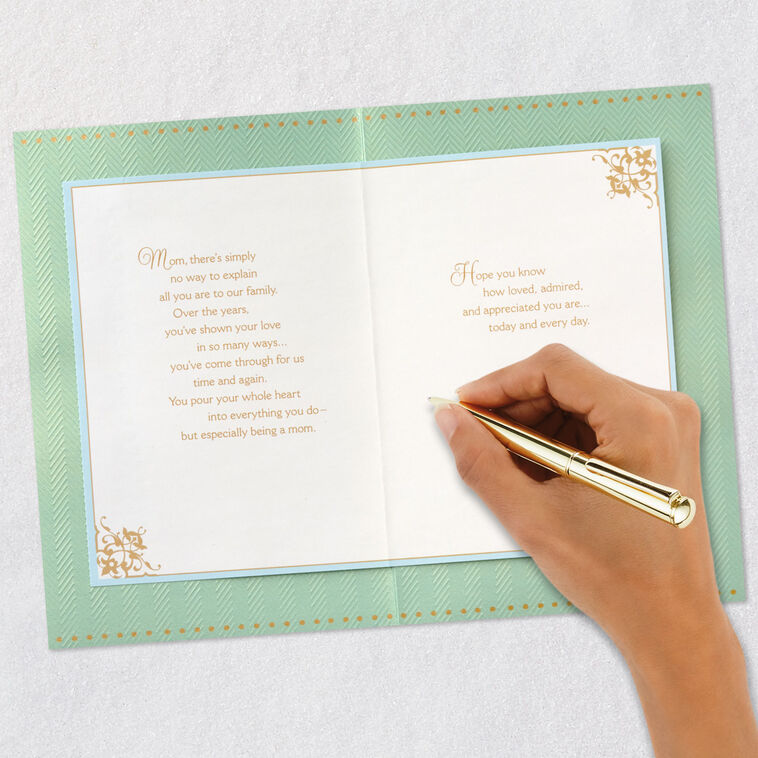 Mom, there's simply
no way to explain
all you are to our family.
Over the years,
you've shown your love
in so many ways...
you've come through for us
time and again.
You pour your whole heart
into everything you do—
but especially being a mom.
Hope you know
how loved, admired,
and appreciated you are...
today and every day.